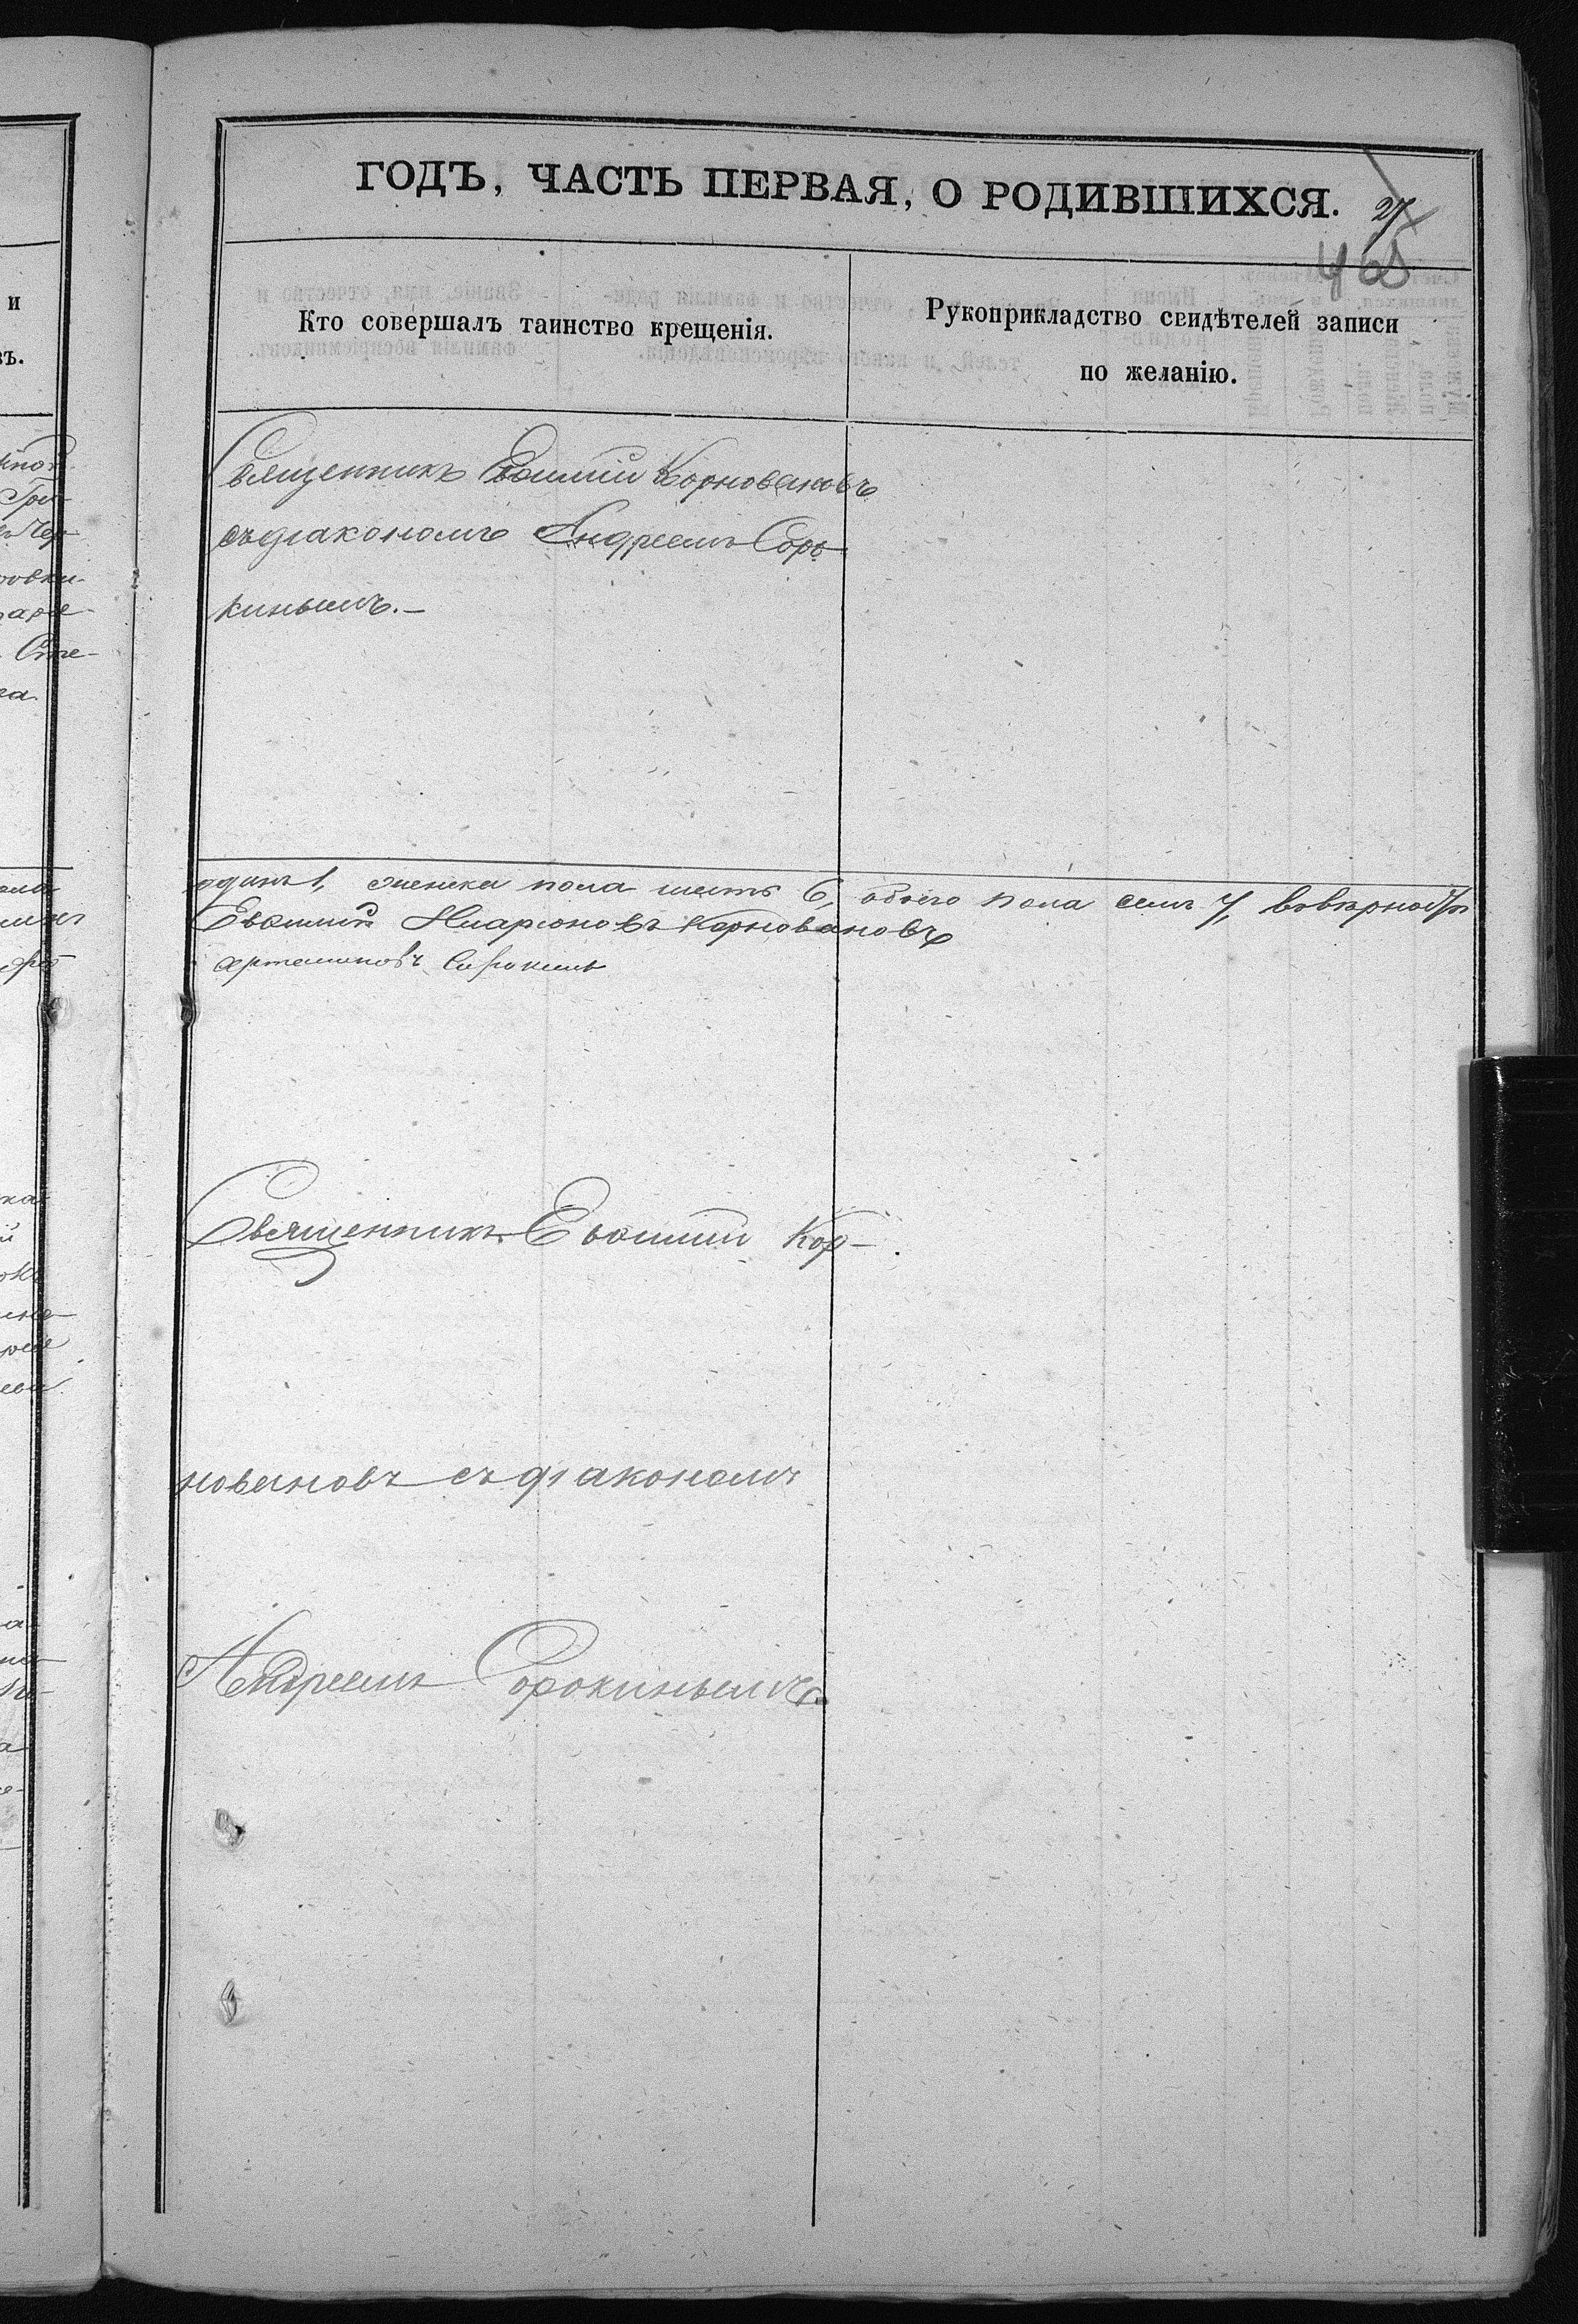 ГОДЪ, ЧАСТЬ ПЕРВАЯ, О РОДИВШИХСЯ. 27
Кто совершалъ таинство крещенія.
Рукоприкладство свидѣтелей записи
по желанію.
Священникъ Евѳимій Корновановъ
съ діакономъ Андреемъ Соро
кинымъ.—
одинъ 1, женска пола шесть 6, обоего пола семь 7,
Евѳимій Иларіоновъ Корновановъ
Артемоновъ Сорокинъ
Священникъ Евѳимій Кор-
новановъ съ діакономъ
Андреемъ Сорокинымъ